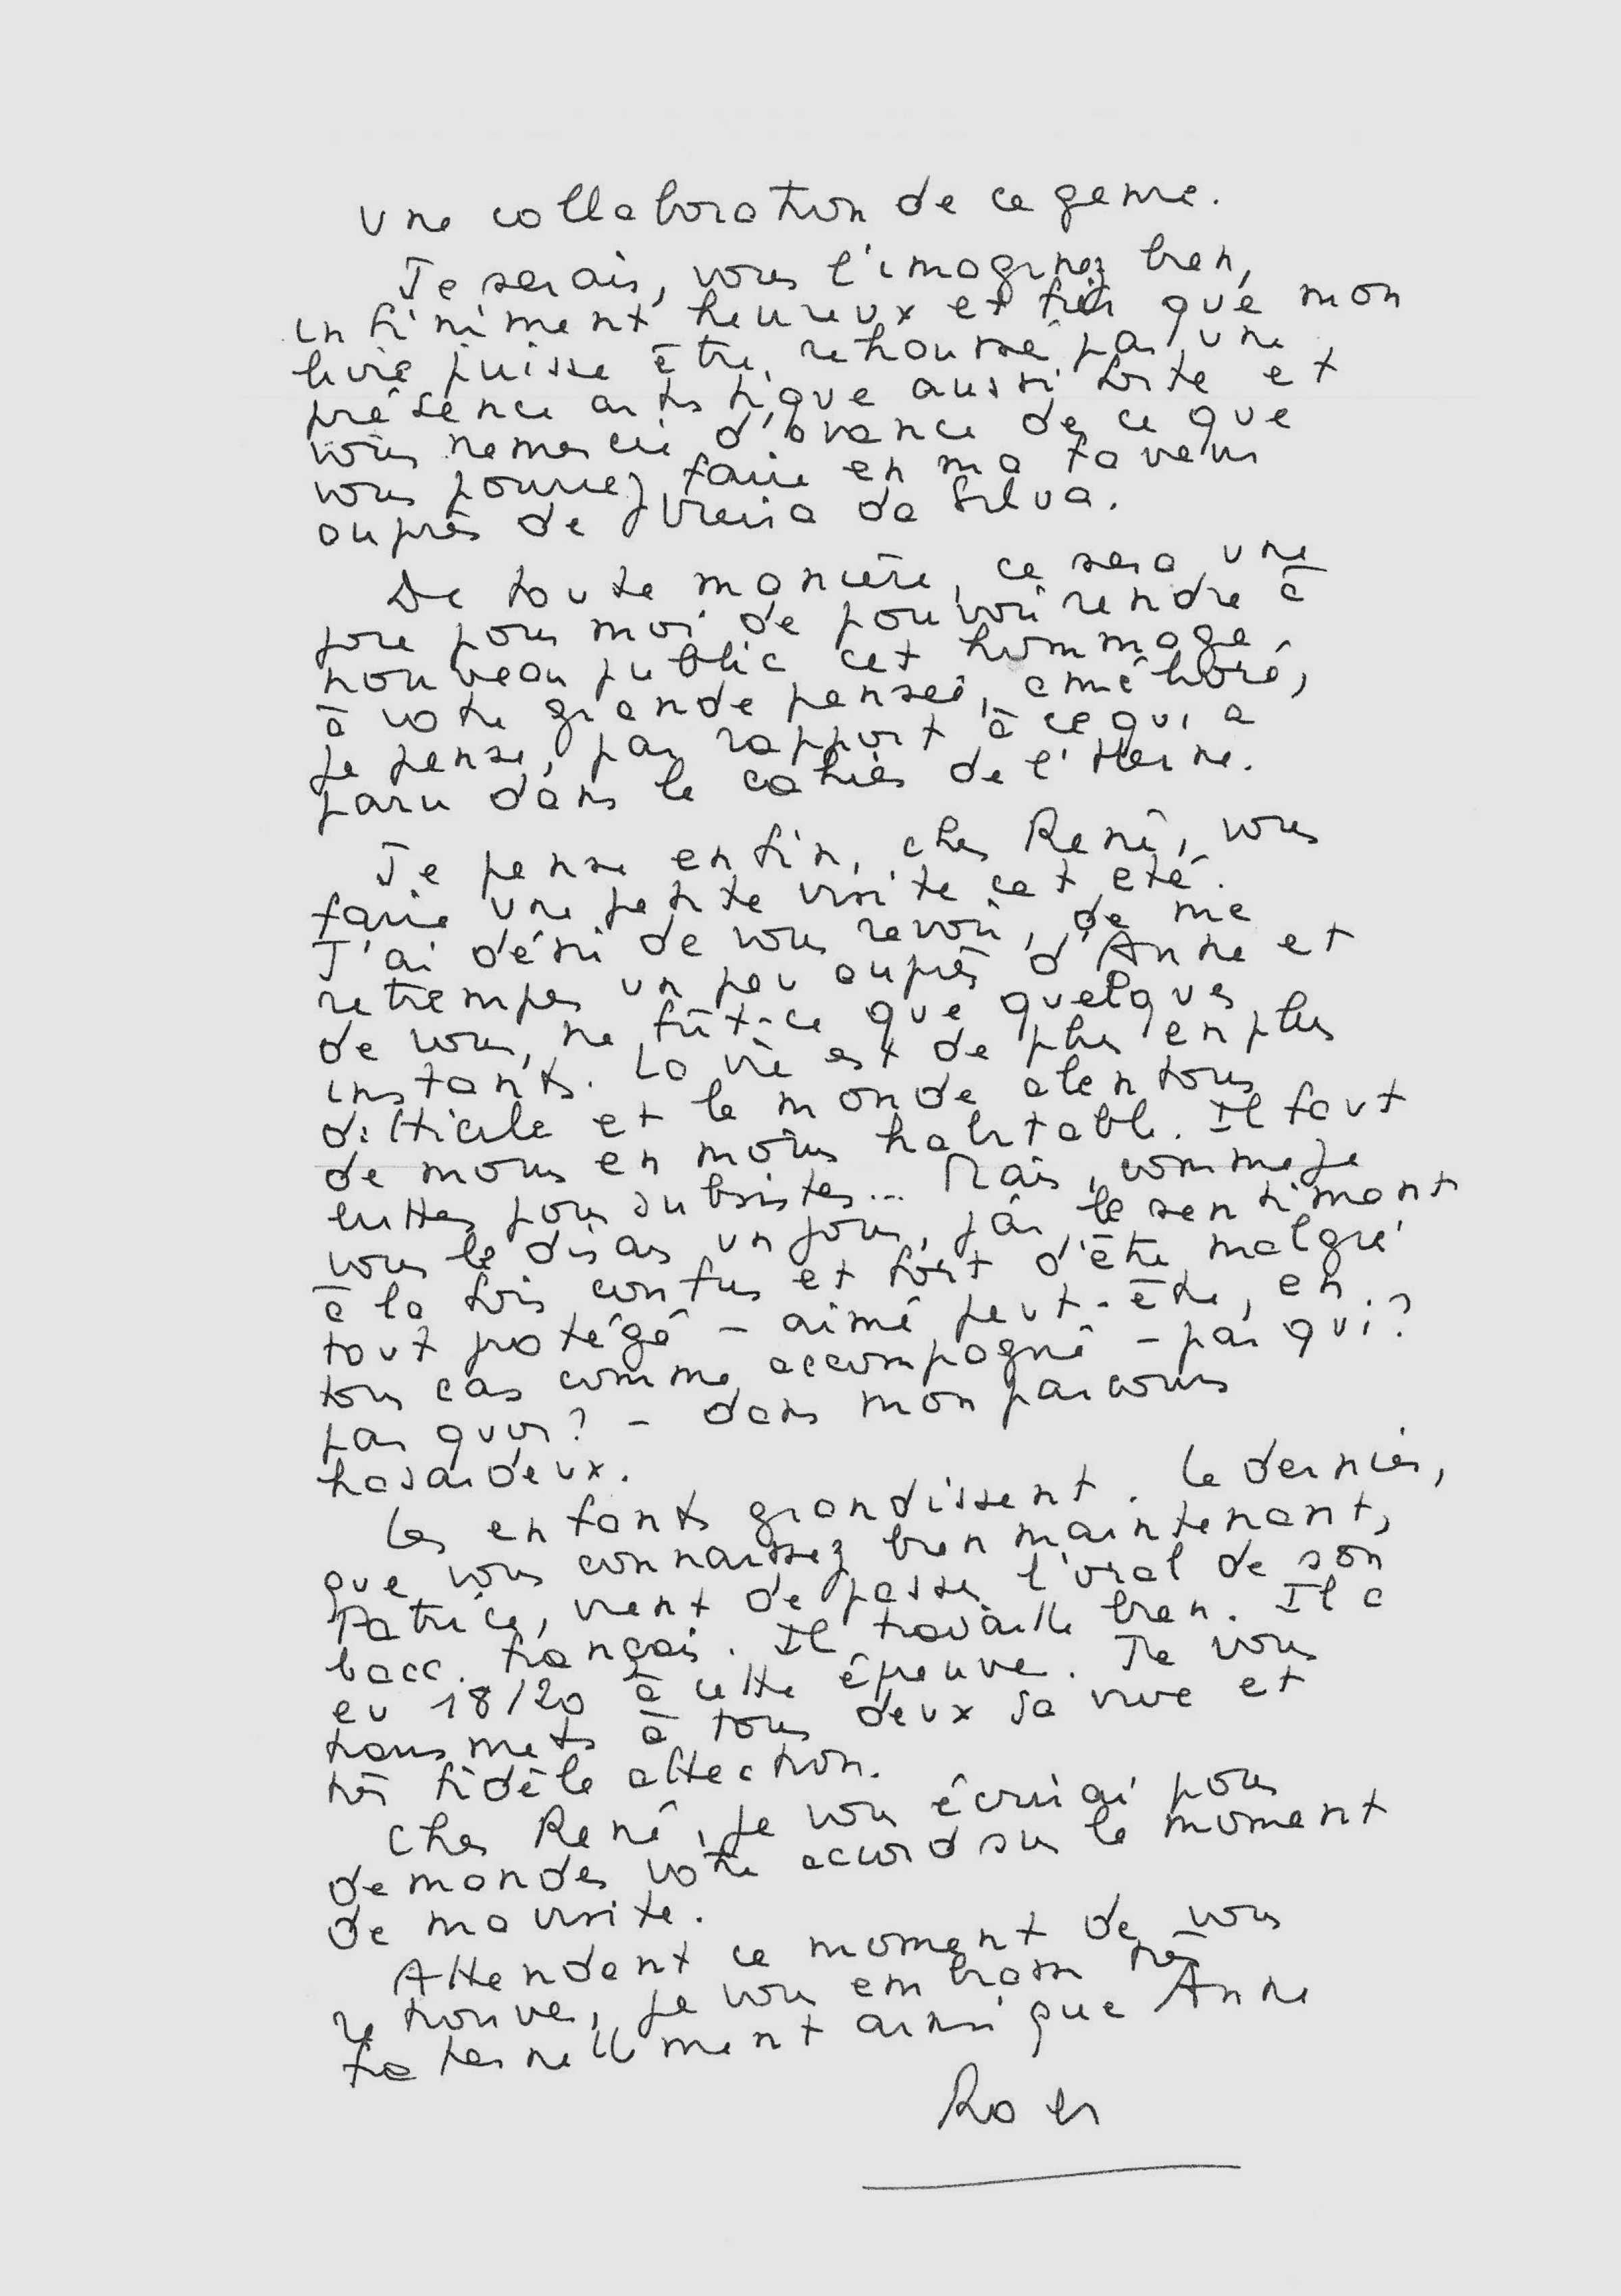 une collaboration de ce genre.
Je serais, vous l'imaginez bien,
infiniment heureux et fier que mon
livre puisse être rehaussé par une
présence artistique aussi forte et
vous remercie d'avance de ce que
vous pourrez faire en ma faveur
auprès de Vieira da Silva.
De toute manière, ce sera une
joie pour moi de pouvoir rendre à
nouveau public cet hommage,
à votre grande pensée, amélioré,
je pense, par rapport à ce qui a
paru dans le cahier de l'Herne.
Je pense enfin, cher René, vous
faire une petite visite cet été.
J'ai désir de vous revoir, de me
retremper un peu auprès d'Anne et
de vous, ne fût-ce que quelques
instants. La vie est de plus en plus
difficile et le monde alentour
de moins en moins habitable. Il faut
lutter pour subsister... Mais, comme je
vous le disais un jour, j'ai le sentiment
à la fois confus et fort d'être malgré
tout protégé - aimé peut-être, en
tous cas comme accompagné - par qui ?
par quoi ? - dans mon parcours
hasardeux.
Les enfants grandissent. Le dernier,
que vous connaissez bien maintenant,
Patrice, vient de passer l'oral de son
bacc. français. Il travaille bien. Il a
eu 18/20 à cette épreuve. Je vous
transmets à tous deux sa vive et
très fidèle affection.
Cher René, je vous écrirai pour
demander votre accord sur le moment
de ma visite.
Attendant ce moment de vous
retrouver, je vous embrasse très
fraternellement ainsi que Anne